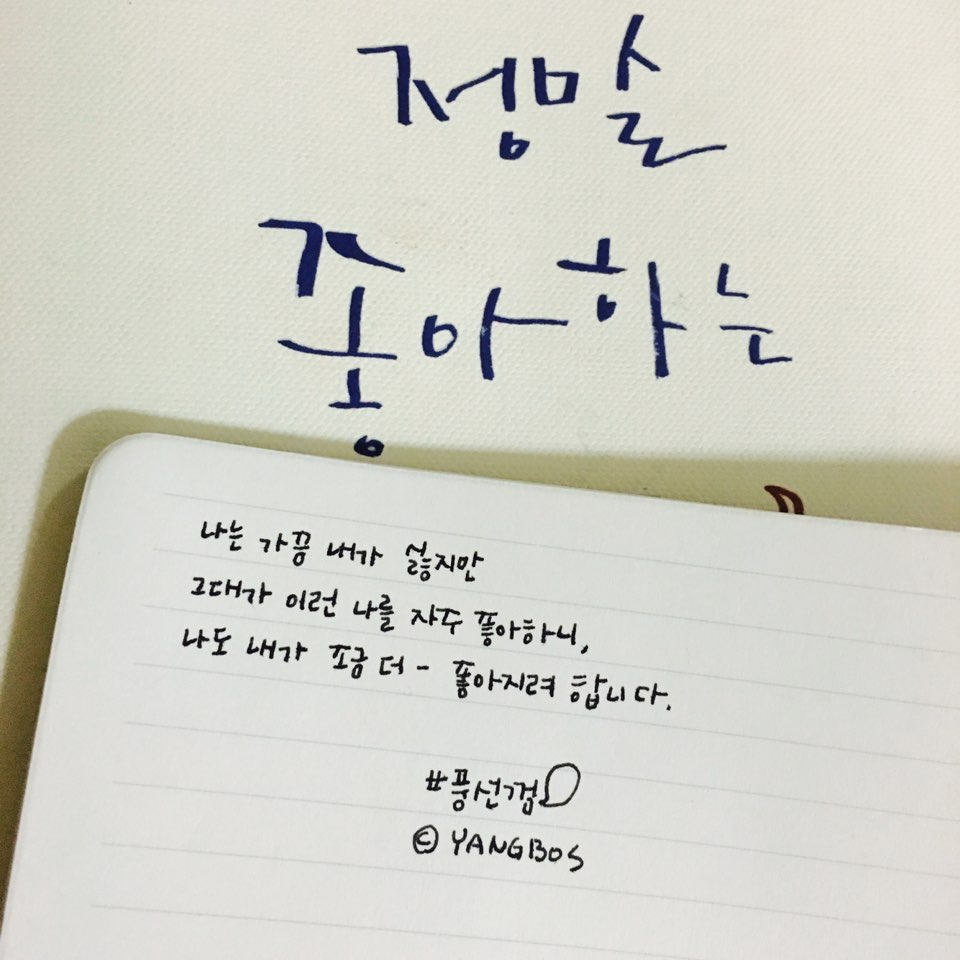 정말
좋아하는
나는 가끔 내가 싫지만
그대가 이런 나를 자주 좋아하니,
나도 내가 조금 더 - 좋아지려 합니다.
#풍선껌
© YANGBOS